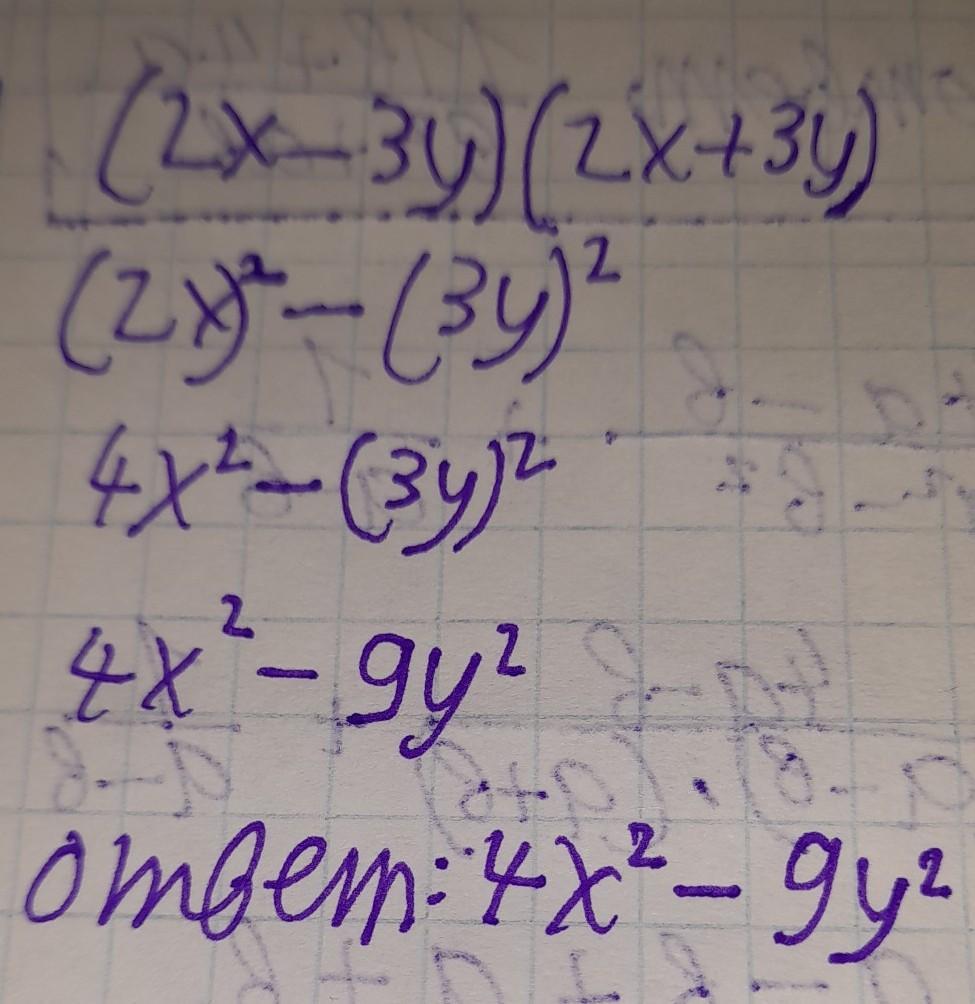 (2x-3y)(2x+3y)
(2x)²-(3y)²
4x²-(3y)²
4x²-9y²
ответ: 4x²-9y²